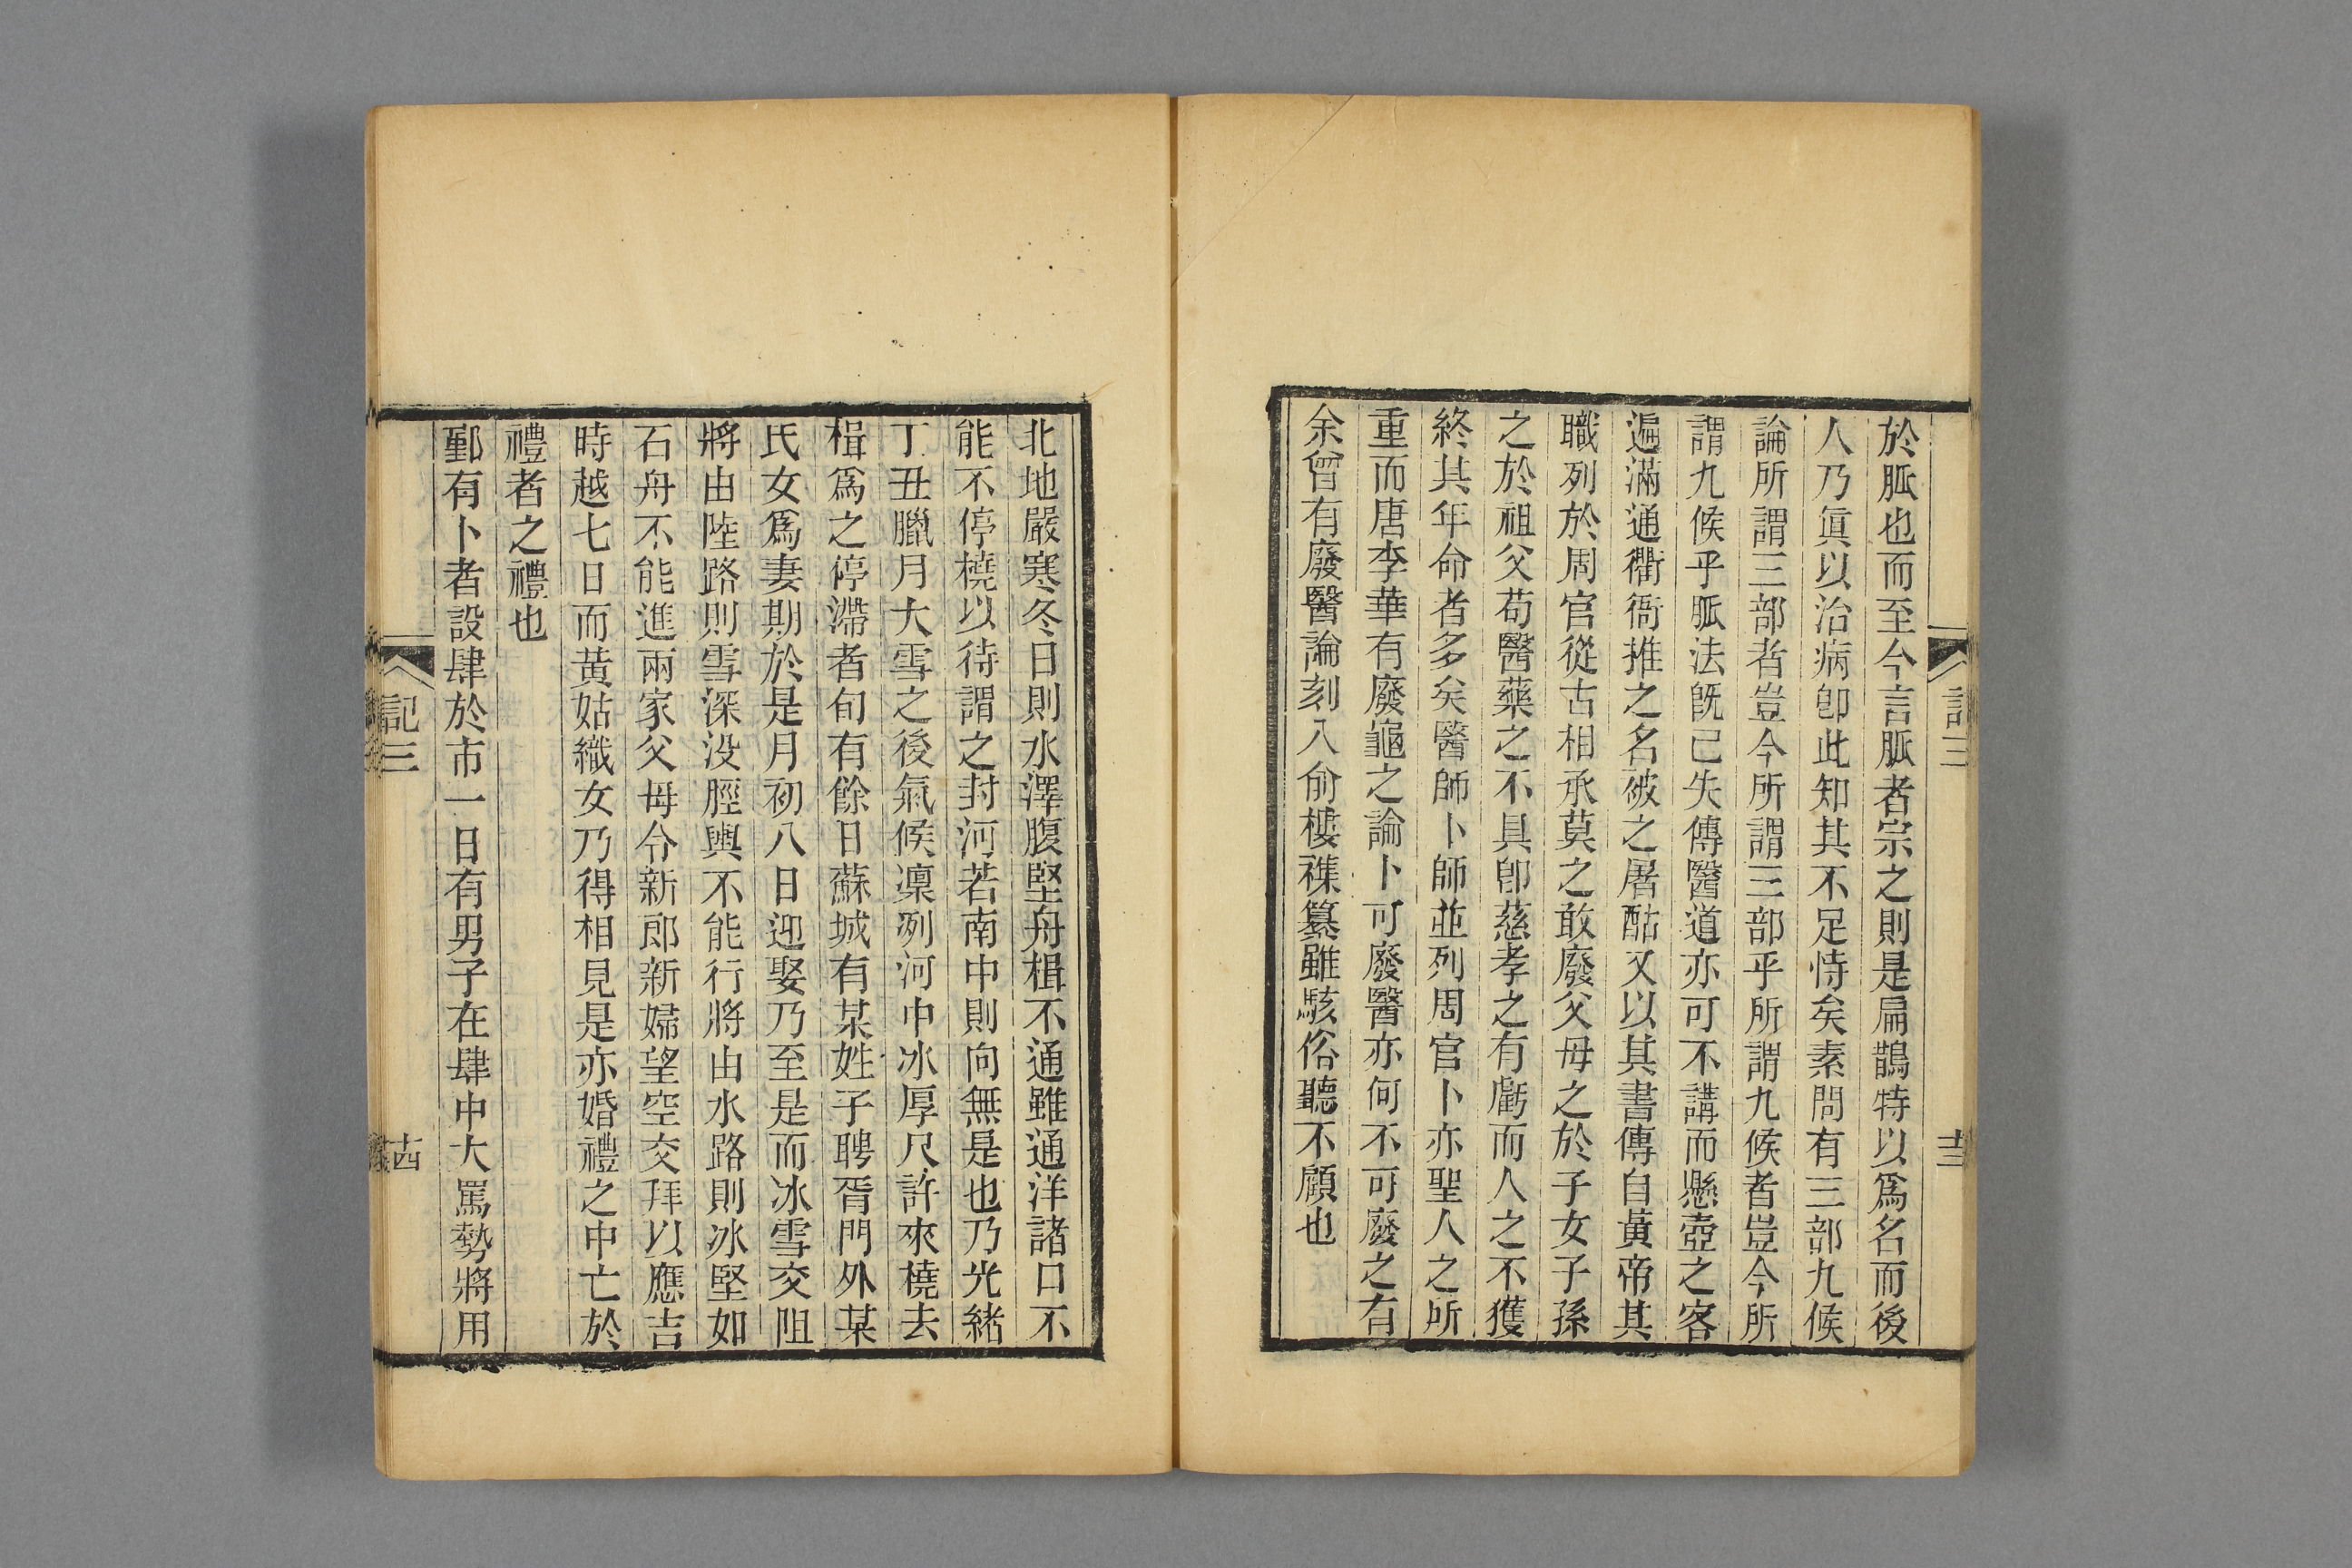 於脈也而至今言脈者宗之則是扁鵲特以爲名而後
人乃眞以治病卽此知其不足恃矣素問有三部九候
論所謂三部者豈今所謂三部乎所謂九候者豈今所
謂九候乎脈法旣已失傳醫道亦可不講而懸壺之客
遍滿通衢衙推之名破之屠酤又以其書傳自黃帝其
職列於周官從古相承莫之敢廢父母之於子女子孫
之於祖父苟醫藥之不具卽慈孝之有虧而人之不獲
終其年命者多矣醫師卜師並列周官卜亦聖人之所
重而唐李華有廢龜之論卜可廢醫亦何不可廢之有
余曾有廢醫論刻入俞樓襍纂雖駭俗聽不顧也
記三
十三
北地嚴寒冬日則水澤腹堅舟楫不通雖通洋諸口不
能不停橈以待謂之封河若南中則向無是也乃光緒
丁丑臘月大雪之後氣候凜冽河中冰厚尺許來橈去
楫爲之停滯者旬有餘日蘇城有某姓子聘胥門外某
氏女爲妻期於是月初八日迎娶乃至是而冰雪交阻
將由陸路則雪深没脛輿不能行將由水路則冰堅如
石舟不能進兩家父母令新郎新婦望空交拜以應吉
時越七日而黃姑織女乃得相見是亦婚禮之中亡於
禮者之禮也
鄞有卜者設肆於市一日有男子在肆中大罵勢將用
記三
十四